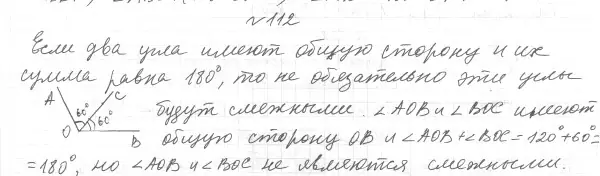 №112
Если два угла имеют общую сторону и их
сумма равна 180°, то не обязательно эти углы
A C 60° 60° O B
будут смежными. ∠AOB и ∠BOC имеют
общую сторону OB и ∠AOB+∠BOC=120°+60°=
=180°, но ∠AOB и ∠BOC не являются смежными.